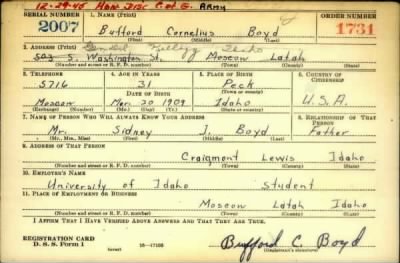 12-29-45 Hon Disc C of G. Army
SERIAL NUMBER 1. NAME (Print) ORDER NUMBER
2007 Bufford Cornelius Boyd 1731
(First) (Middle) (Last)
2. ADDRESS (Print) General Kellogg Idaho
503 S. Washington St. Moscow Latah
(Number and street or R. F. D. number) (Town) (County) (State)
3. TELEPHONE 4. AGE IN YEARS 5. PLACE OF BIRTH 6. COUNTRY OF CITIZENSHIP
5716 31 Peck
DATE OF BIRTH (Town or county)
Moscow Mar. 20 1909 Idaho U.S.A.
(Exchange) (Number) (Mo.) (Day) (Yr.) (State or country)
7. NAME OF PERSON WHO WILL ALWAYS KNOW YOUR ADDRESS 8. RELATIONSHIP OF THAT PERSON
Mr. Sidney J. Boyd Father
(Mr., Mrs., Miss) (First) (Middle) (Last)
9. ADDRESS OF THAT PERSON
Craigmont Lewis Idaho
(Number and street or R. F. D. number) (Town) (County) (State)
10. EMPLOYER'S NAME
University of Idaho Student
11. PLACE OF EMPLOYMENT OR BUSINESS
Moscow Latah Idaho
(Number and street or R. F. D. number) (Town) (County) (State)
I AFFIRM THAT I HAVE VERIFIED ABOVE ANSWERS AND THAT THEY ARE TRUE.
REGISTRATION CARD
D. S. S. Form 1 16-17105 Bufford C. Boyd
(Registrant's signature)